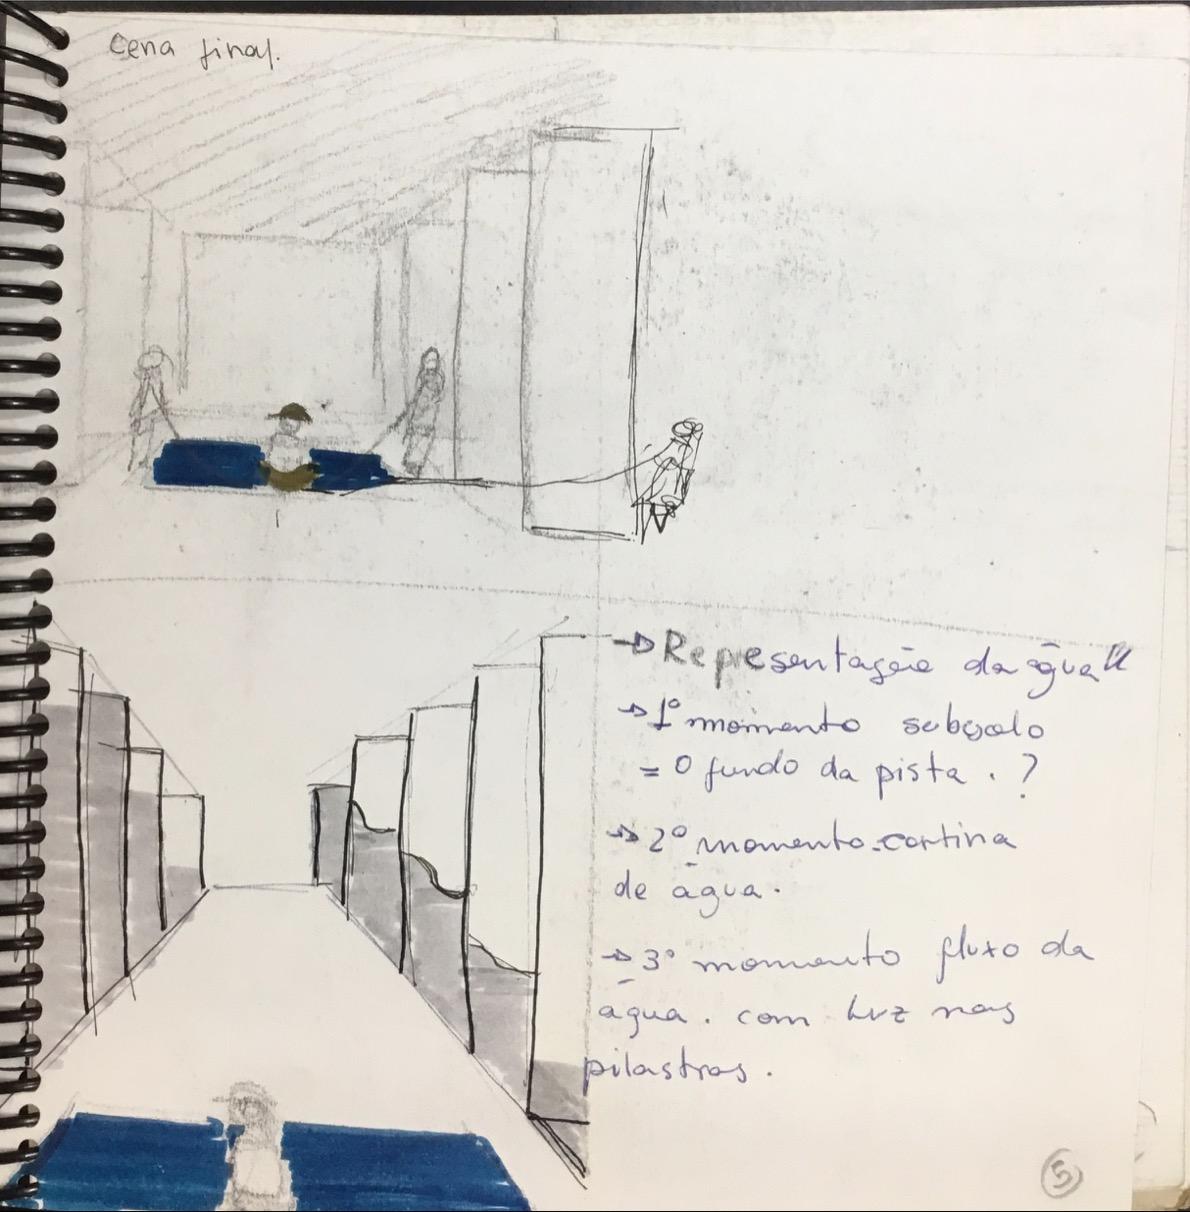 Cena final.
→ Representação da água"
→ 1º momento subsolo
= o fundo da pista. ?
→ 2º momento. cortina
de água.
→ 3º momento fluxo da
água. com luz nas
pilastras.
5